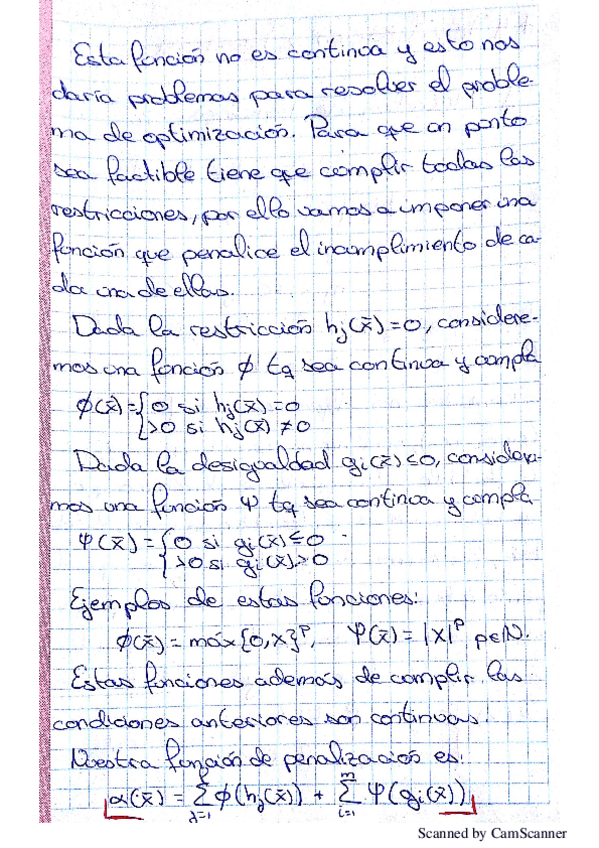 Esta función no es continua y esto nos
daría problemas para resolver el proble-
ma de optimización. Para que un punto
sea factible tiene que cumplir todas las
restricciones, por ello vamos a imponer una
función que penalice el incumplimiento de ca-
da una de ellas.
Dada la restricción hj(x̄)=0, considere-
mos una función ϕ tq sea continua y cumpla
ϕ(x̄)={0 si hj(x̄)=0
{>0 si hj(x̄)≠0
Dada la desigualdad gi(x̄)≤0, considera-
mos una función ψ tq sea continua y cumpla
ψ(x̄)={0 si gi(x̄)≤0
{>0 si gi(x̄)>0
Ejemplos de estas funciones:
ϕ(x̄)=máx{0,x}^p, ψ(x̄)=|x|^p p∈ℕ.
Estas funciones además de cumplir las
condiciones anteriores son continuas.
Nuestra función de penalización es:
α(x̄) = Σ_{j=1}^{l} ϕ(hj(x̄)) + Σ_{i=1}^{m} ψ(gi(x̄))
Scanned by CamScanner